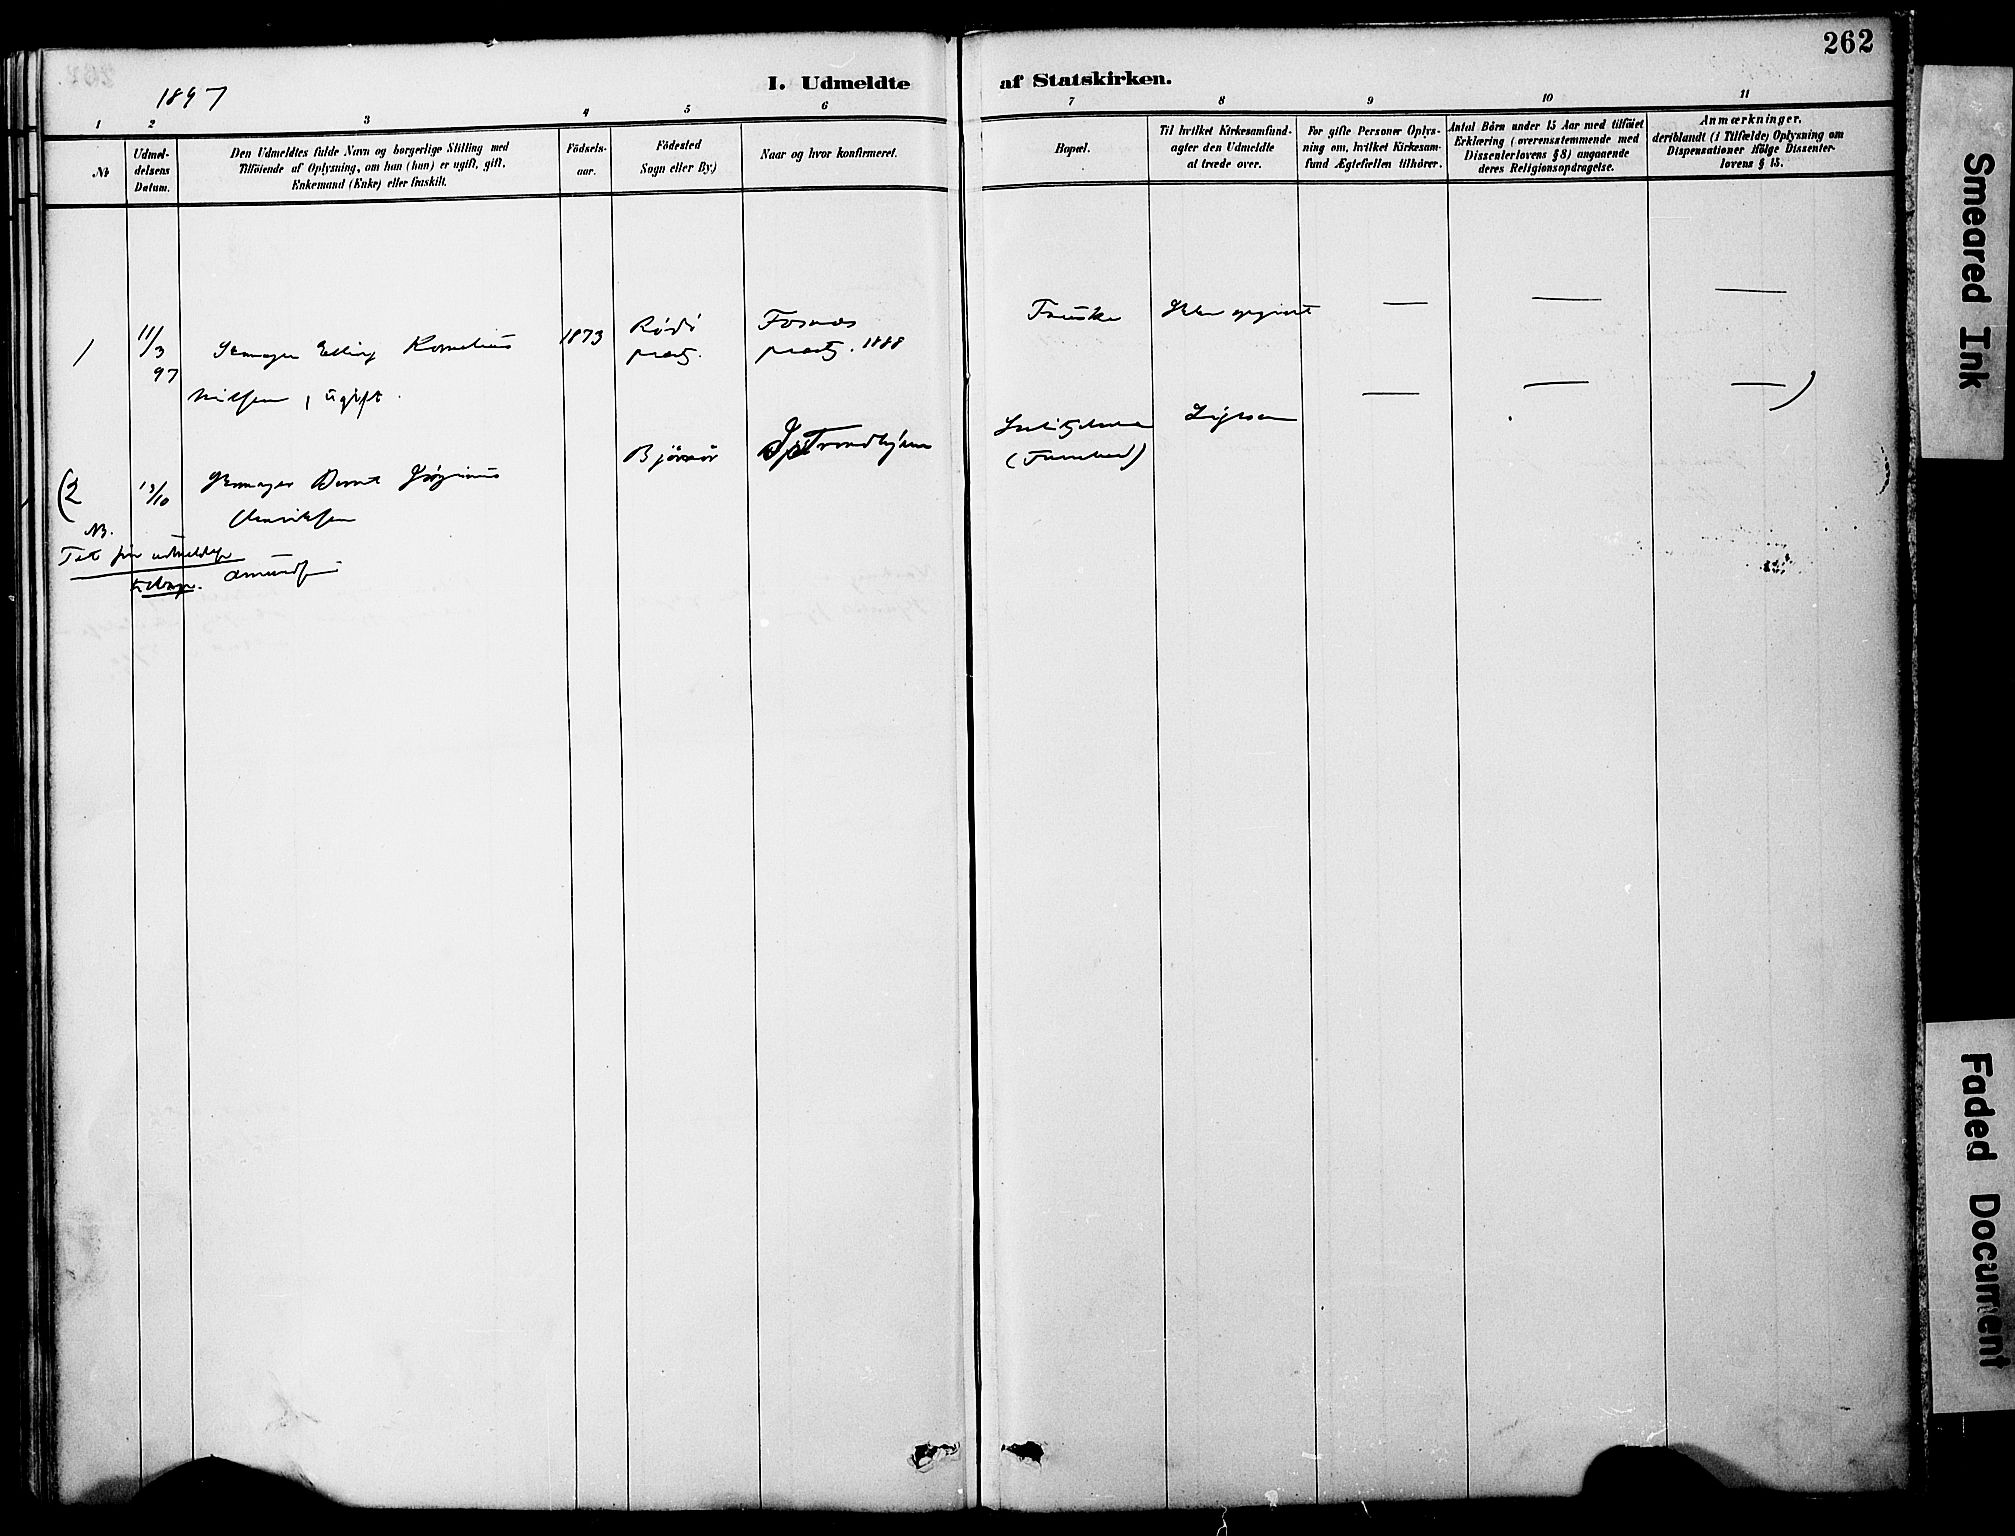 262
1897
I. Udmeldte af Statskirken.
1 2 3 4 5 6 7 8 9 10 11
№
Udmel-
delsens
Datum.
Den Udmeldtes fulde Navn og borgerlige Stilling med
Tilföiende af Oplysning, om han (hun) er ugift, gift,
Enkemand (Enke) eller fraskilt.
Födsels-
aar.
Födested
Sogn eller By.)
Naar og hvor konfirmeret.
Bopæl.
Til hvilket Kirkesamfund-
agter den Udmeldte
at træde over.
For gifte Personer Oplys-
ning om, hvilket Kirkesam-
fund Ægtefællen tilhörer.
Antal Börn under 15 Aar med tilföiet
Erklæring (overensstemmende med
Dissenterlovens § 8) angaaende
deres Religionsopdragelse.
Anmærkninger,
deriblandt (i Tilfælde) Oplysning om
Dispensationer ifölge Dissenter-
lovens § 15.
1
11/3
97
Elling Kornelius
Nilsen, ugift.
1873
Rødø
præstg.
Fosnæs
præstg. 1888
Fauske
Ikke opgivet
— — —
(2
13/10
Bernt Jørginus
Henriksen
Bjørnør
Trondhjem
— — —)
NB.
udmeldelse
tilbage.
Amundsen
Smeared Ink
Faded Document